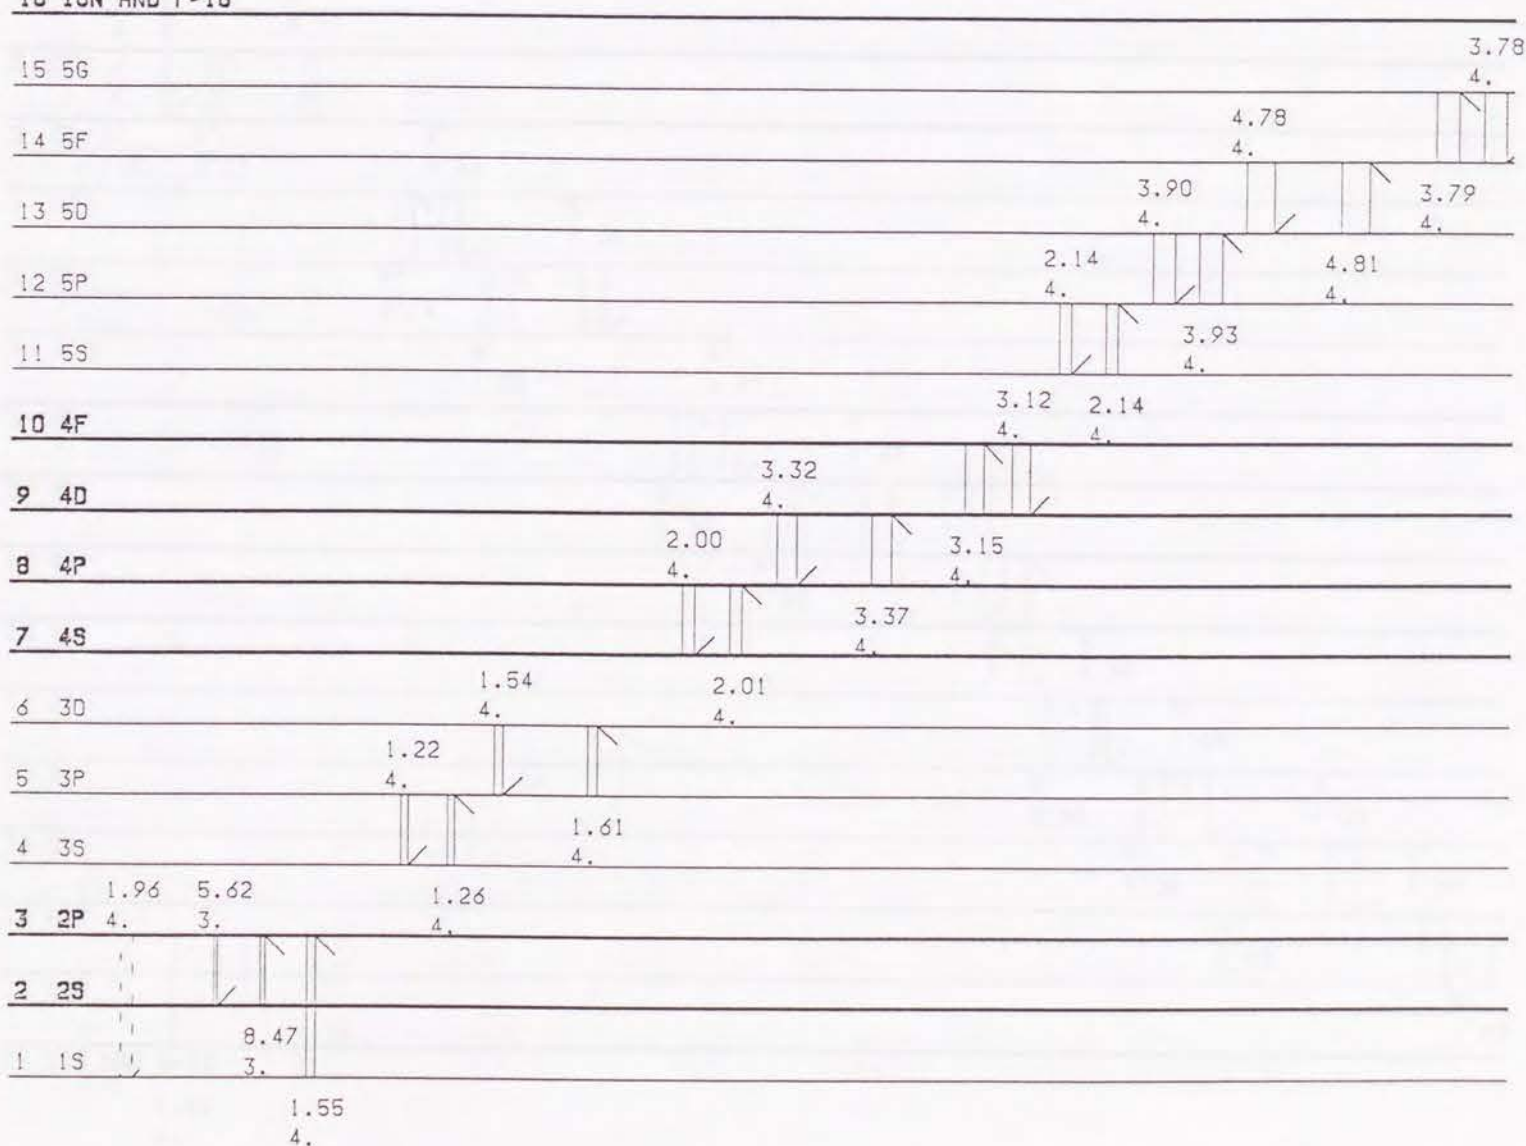 15 5G
3.78
4.
14 5F
4.78
4.
13 5D
3.90
4.
3.79
4.
12 5P
2.14
4.
4.81
4.
11 5S
3.93
4.
10 4F
3.12 2.14
4. 4.
9 4D
3.32
4.
8 4P
2.00
4.
3.15
4.
7 4S
3.37
4.
6 3D
1.54
4.
2.01
4.
5 3P
1.22
4.
4 3S
1.61
4.
3 2P
1.96 5.62
4. 3.
1.26
4.
2 2S
1 1S
8.47
3.
1.55
4.